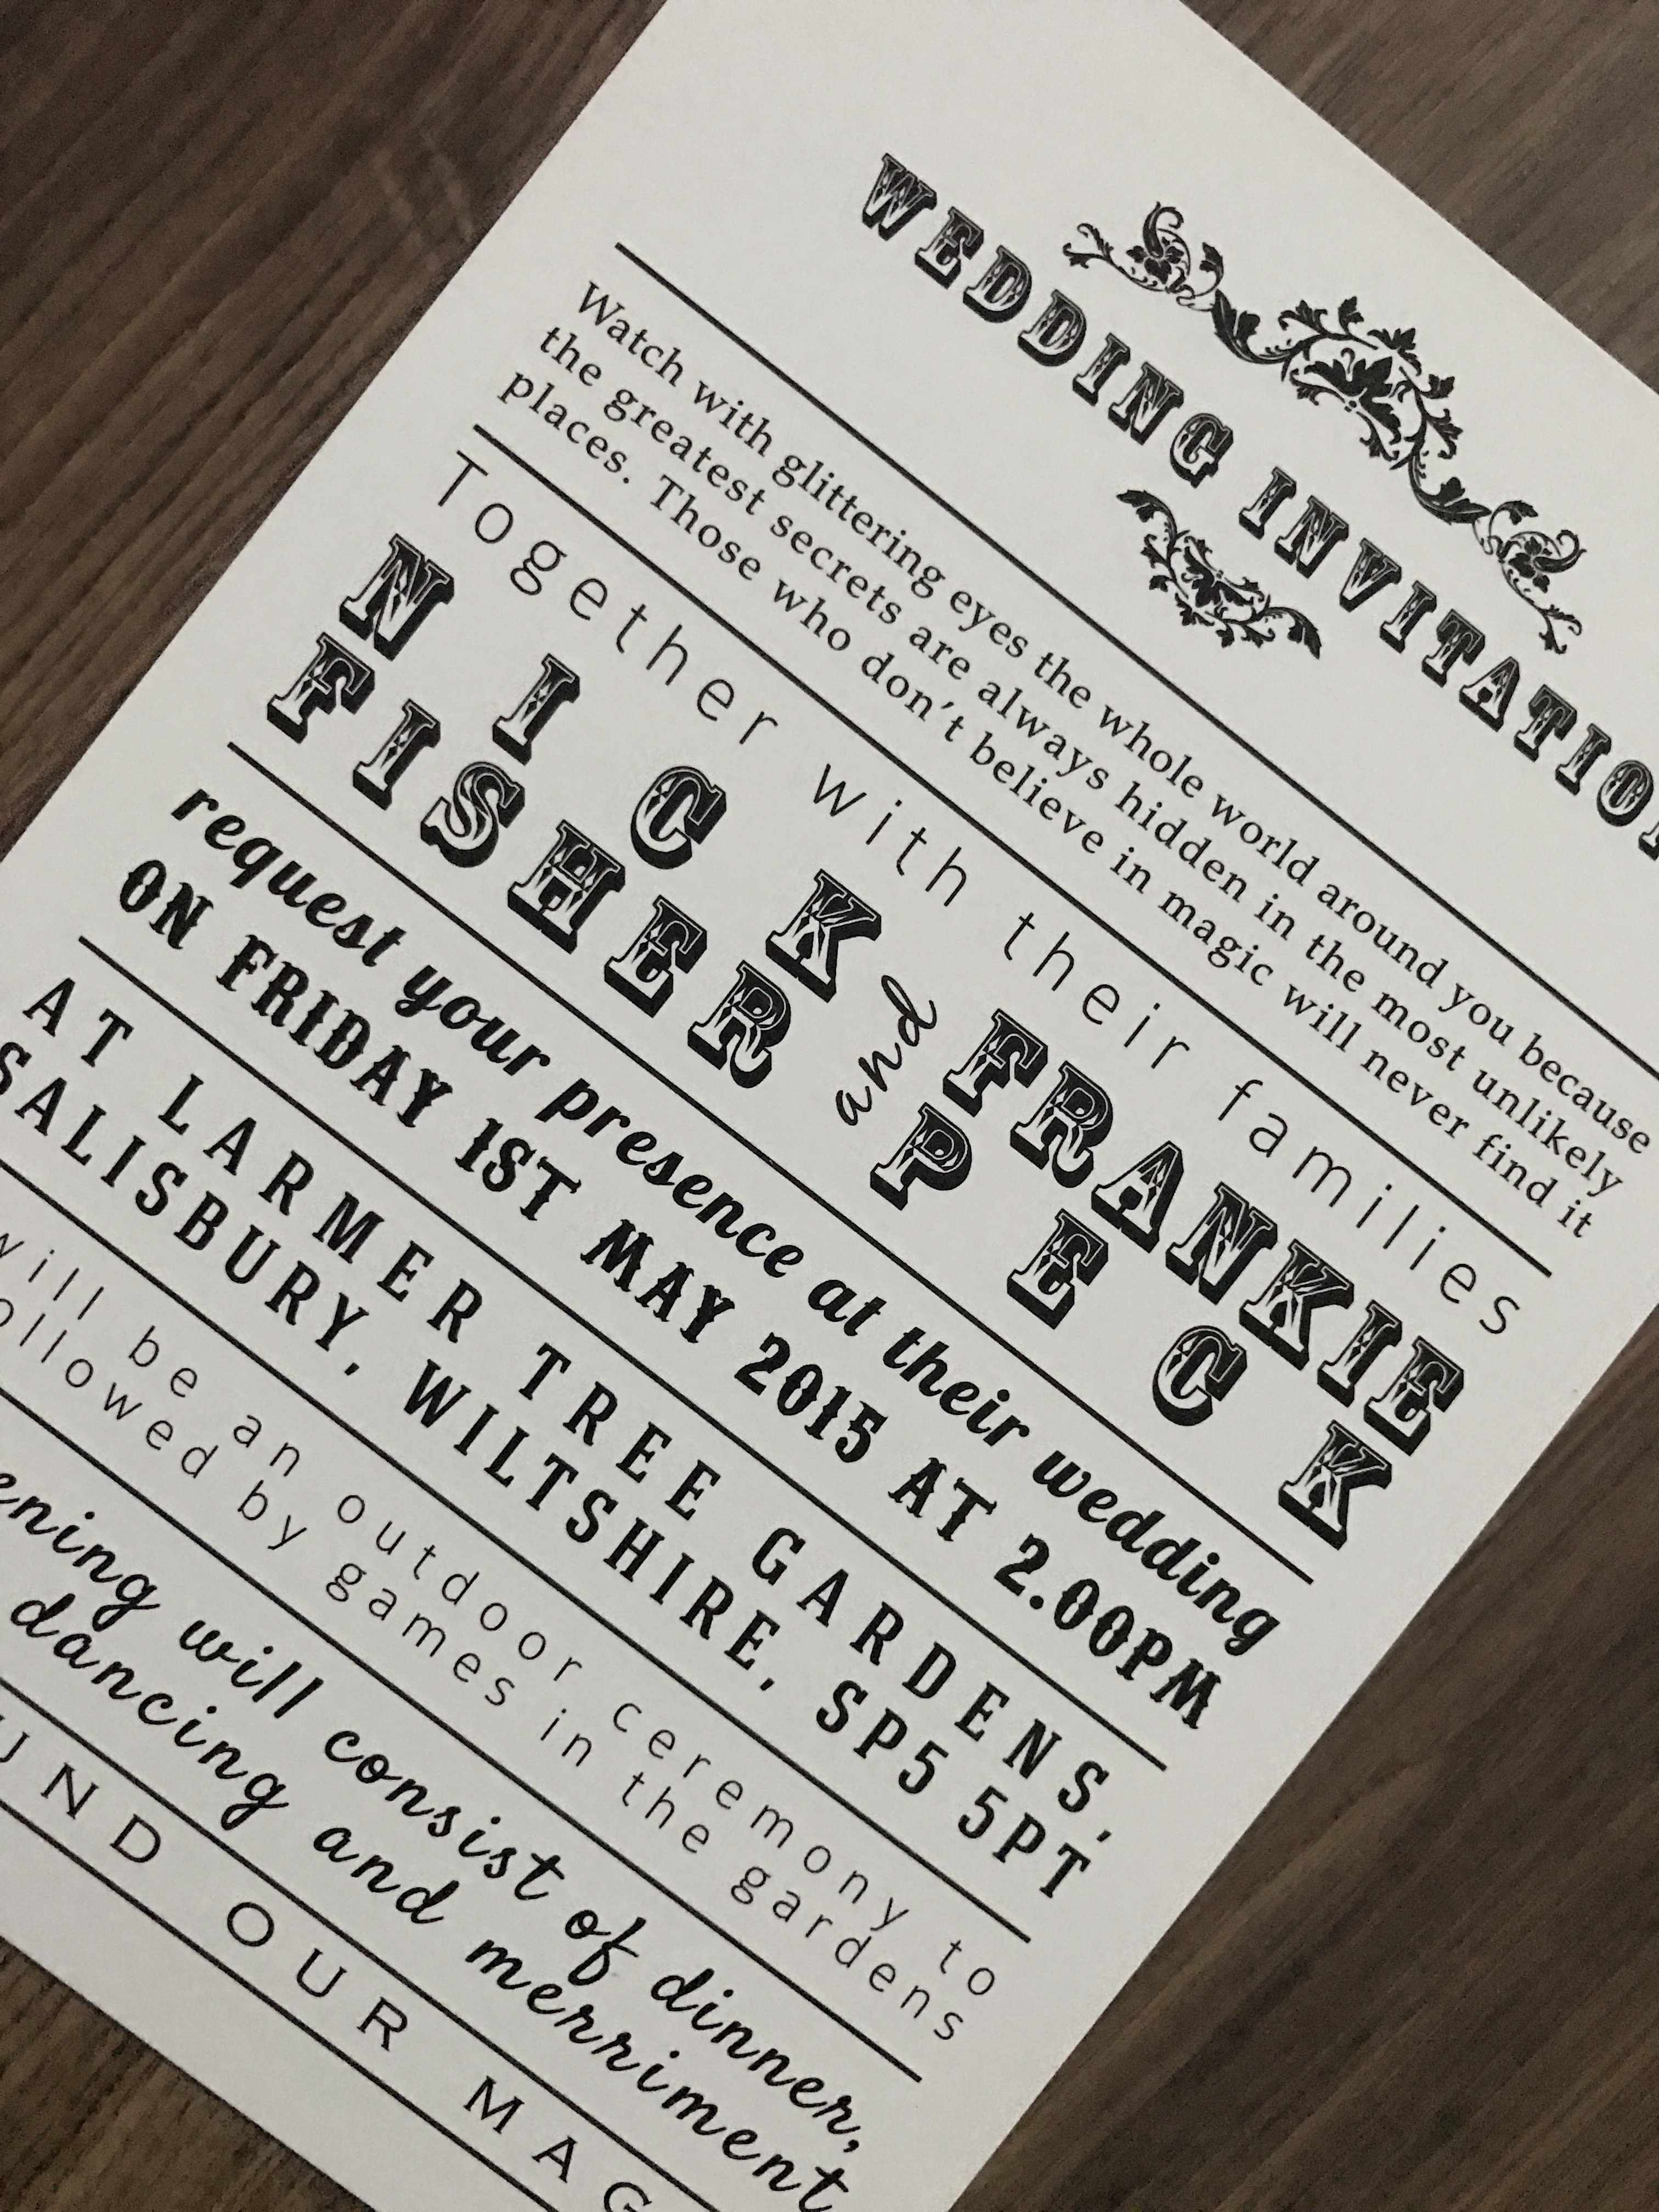 WEDDING INVITATION
Watch with glittering eyes the whole world around you because
the greatest secrets are always hidden in the most unlikely
places. Those who don't believe in magic will never find it
Together with their families
NICK FISHER
and
FRANKIE PECK
request your presence at their wedding
ON FRIDAY 1ST MAY 2015 AT 2.00PM
AT LARMER TREE GARDENS,
SALISBURY, WILTSHIRE, SP5 5PT
will be an outdoor ceremony to
followed by games in the gardens
will consist of dinner,
dancing and merriment
OUR